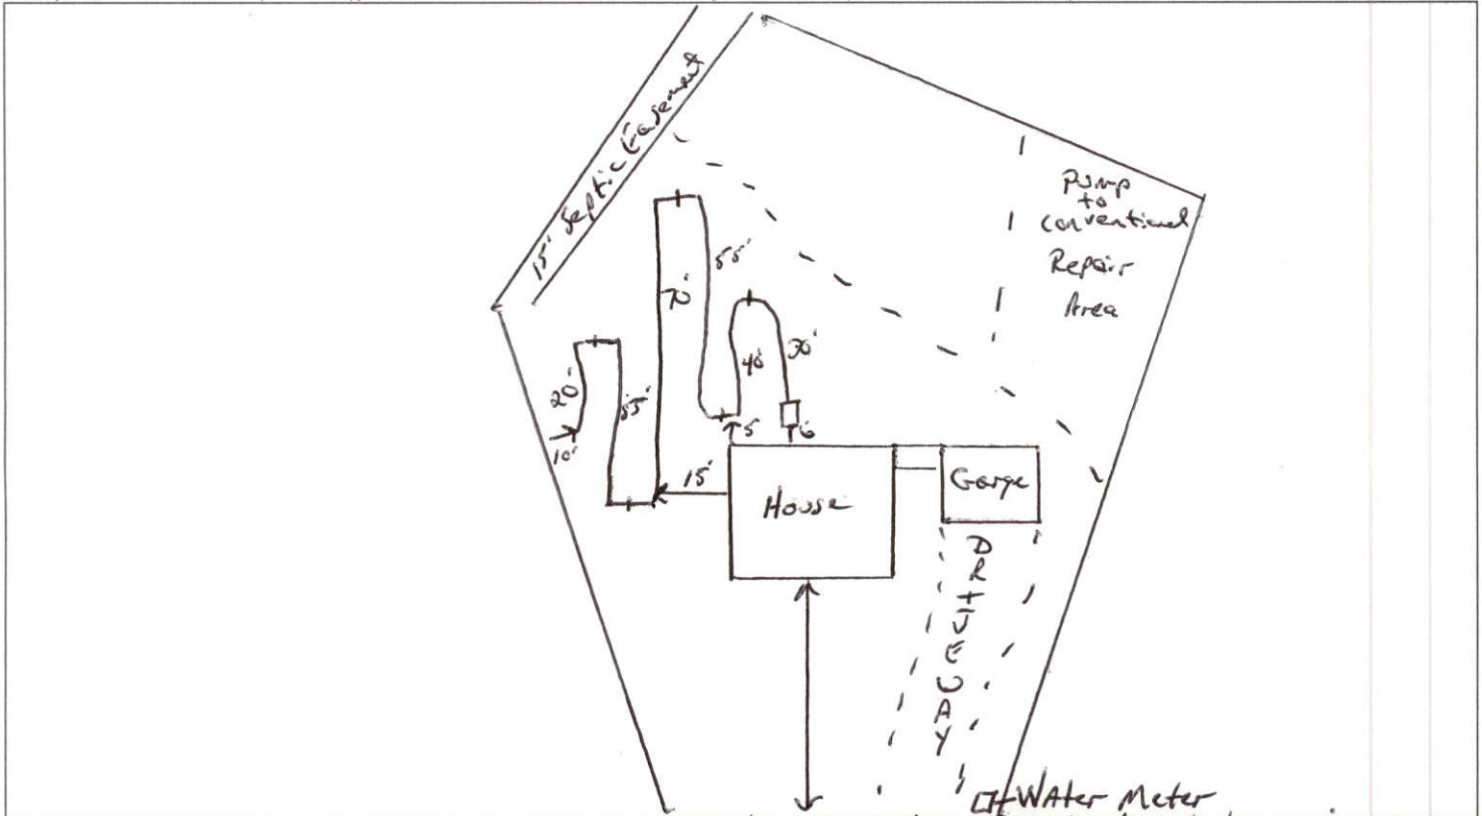 15' Septic Easement
Pump
to
conventional
Repair
Area
55'
70'
40'
30'
20'
55'
10'
5
6
15'
House
Garge
DRIVEWAY
WAter Meter